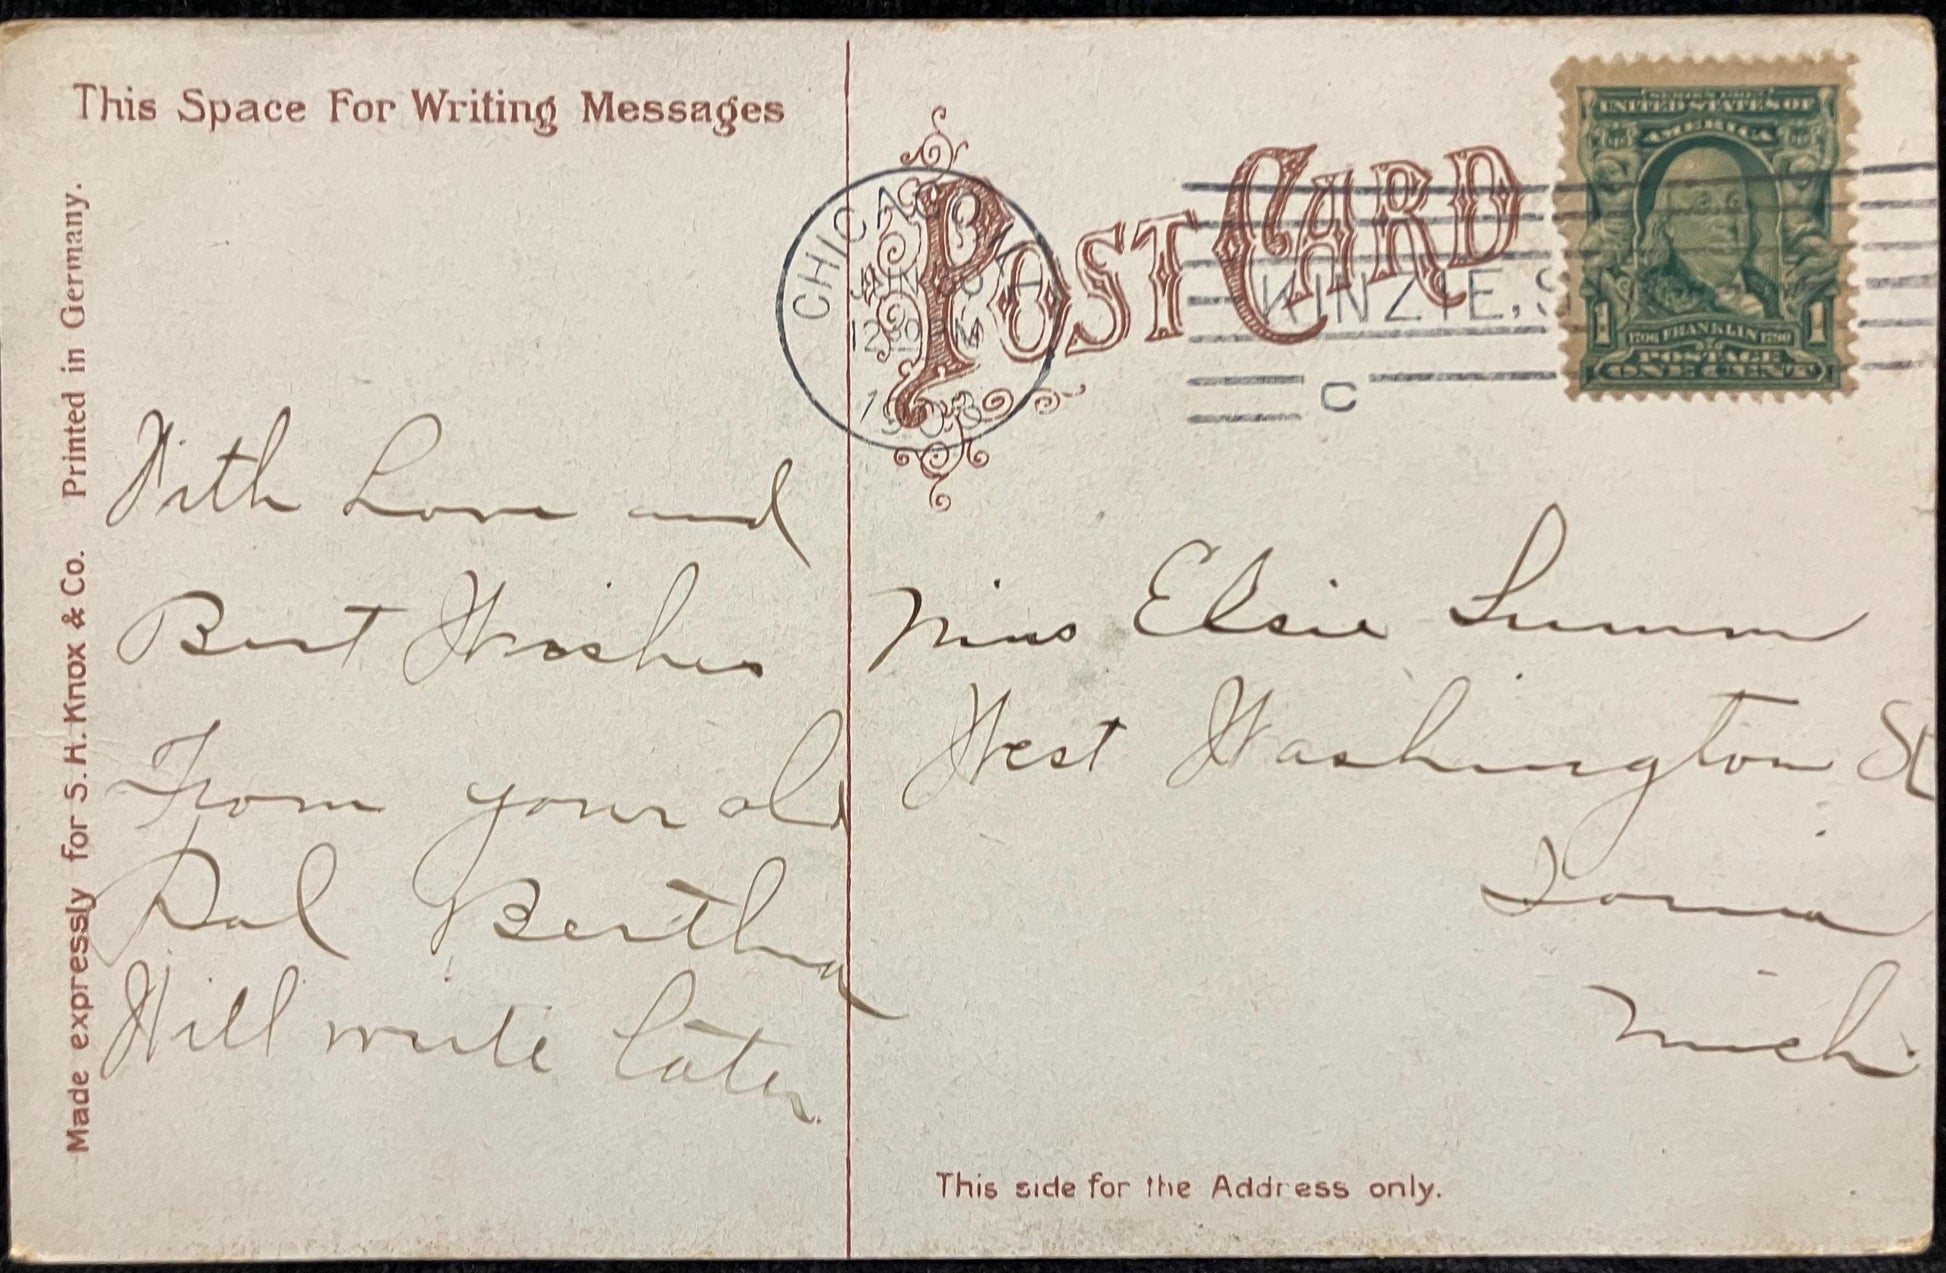 This Space For Writing Messages
Made expressly for S. H. Knox & Co. Printed in Germany.
POST CARD
CHICAGO
JUN
12 30 PM
1908
KINZIE. S
C
SERIES 1902
UNITED STATES OF
AMERICA
1 1
1706 FRANKLIN 1790
POSTAGE
ONE CENT
With Love and
Best Wishes
From your old
Pal Bertha
Will write later
Miss Elsie Lumm
West Washington St
Ionia
Mich
This side for the Address only.